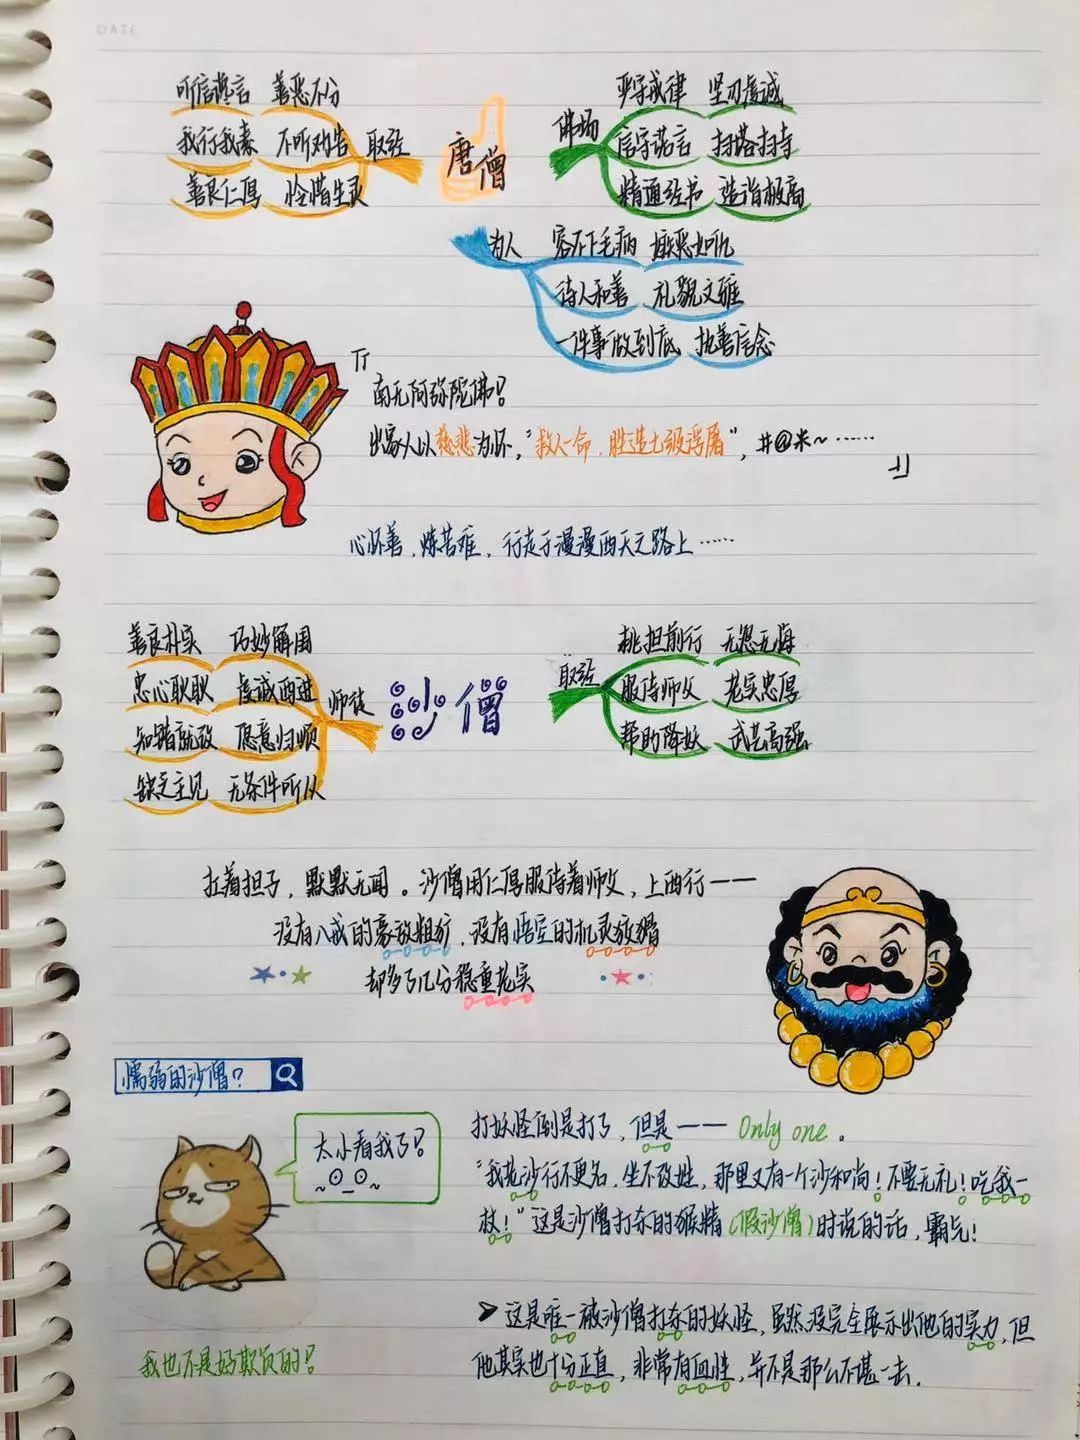 DATE
听信谗言 善恶不分
我行我素 不听劝告 取经
善良仁厚 怜惜生灵
唐僧
严守戒律 坚刃虔诚
佛场 信守诺言 扫塔扫寺
精通经书 造诣极高
为人 容不下毛病 嫉恶如仇
待人和善 礼貌文雅
一件事做到底 执善信念
『
南无阿弥陀佛！
出家人以慈悲为怀，“救人一命，胜造七级浮屠”，#@米~……
』
心怀善，炼苦难，行走于漫漫西天之路上……
善良朴实 巧妙解围
忠心耿耿 虔诚西进 师徒
知错就改 愿意归顺
缺乏主见 无条件听从
沙僧
挑担前行 无怨无悔
取经 服侍师父 老实忠厚
帮助降妖 武艺高强
扛着担子，默默无闻。沙僧用仁厚服侍着师父，上西行——
没有八戒的豪放粗犷，没有悟空的机灵狡猾
却多了几分稳重老实
懦弱的沙僧？
太小看我了！
我也不是好欺负的！
打妖怪倒是打了，但是——Only one。
“我老沙行不更名，坐不改姓，那里又有一个沙和尚！不要无礼！吃我一
杖！”这是沙僧打杀的猴精（假沙僧）时说的话，霸气！
➤这是唯一被沙僧打杀的妖怪，虽然没完全展示出他的实力，但
他其实也十分正直，非常有血性，并不是那么不堪一击.